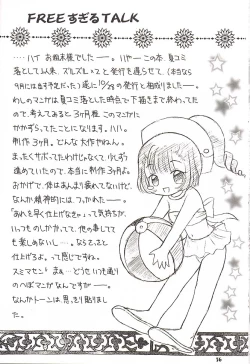 FREEすぎるTALK
‥‥ハイ お粗末様でしたー。ハヤーこの本、夏コミ
落として以来、ズルズルズルと発行を遅らせて(本当なら
9月には出す予定だった)遂に12/29発行と相成りましたー。
わしのマンガは夏コミ落とした時点で下描きまで終わってた
ので、考えてみると3ヶ月程このマンガに
かかずらってたことになります。ハハ。
制作3ヶ月。どんな大作やねん。
まったくサボってたわけじゃなくて、少しずつ
進めていたので、本当に制作3ヶ月。
おかげで、体はあんまり疲れてないけど、
なんか精神的には、つかれたー。
「あれを早く仕上げなきゃ」って気持ちが、
いっつものしかかってて、他の事してて
も楽しめないし…。ならさっさと
仕上げろよ。って感じですね。
スミマセン! まぁ…どういつも通り
のへぼマンガなんですがー。
なんかトーンは、思っきり貼りまし
た。
16